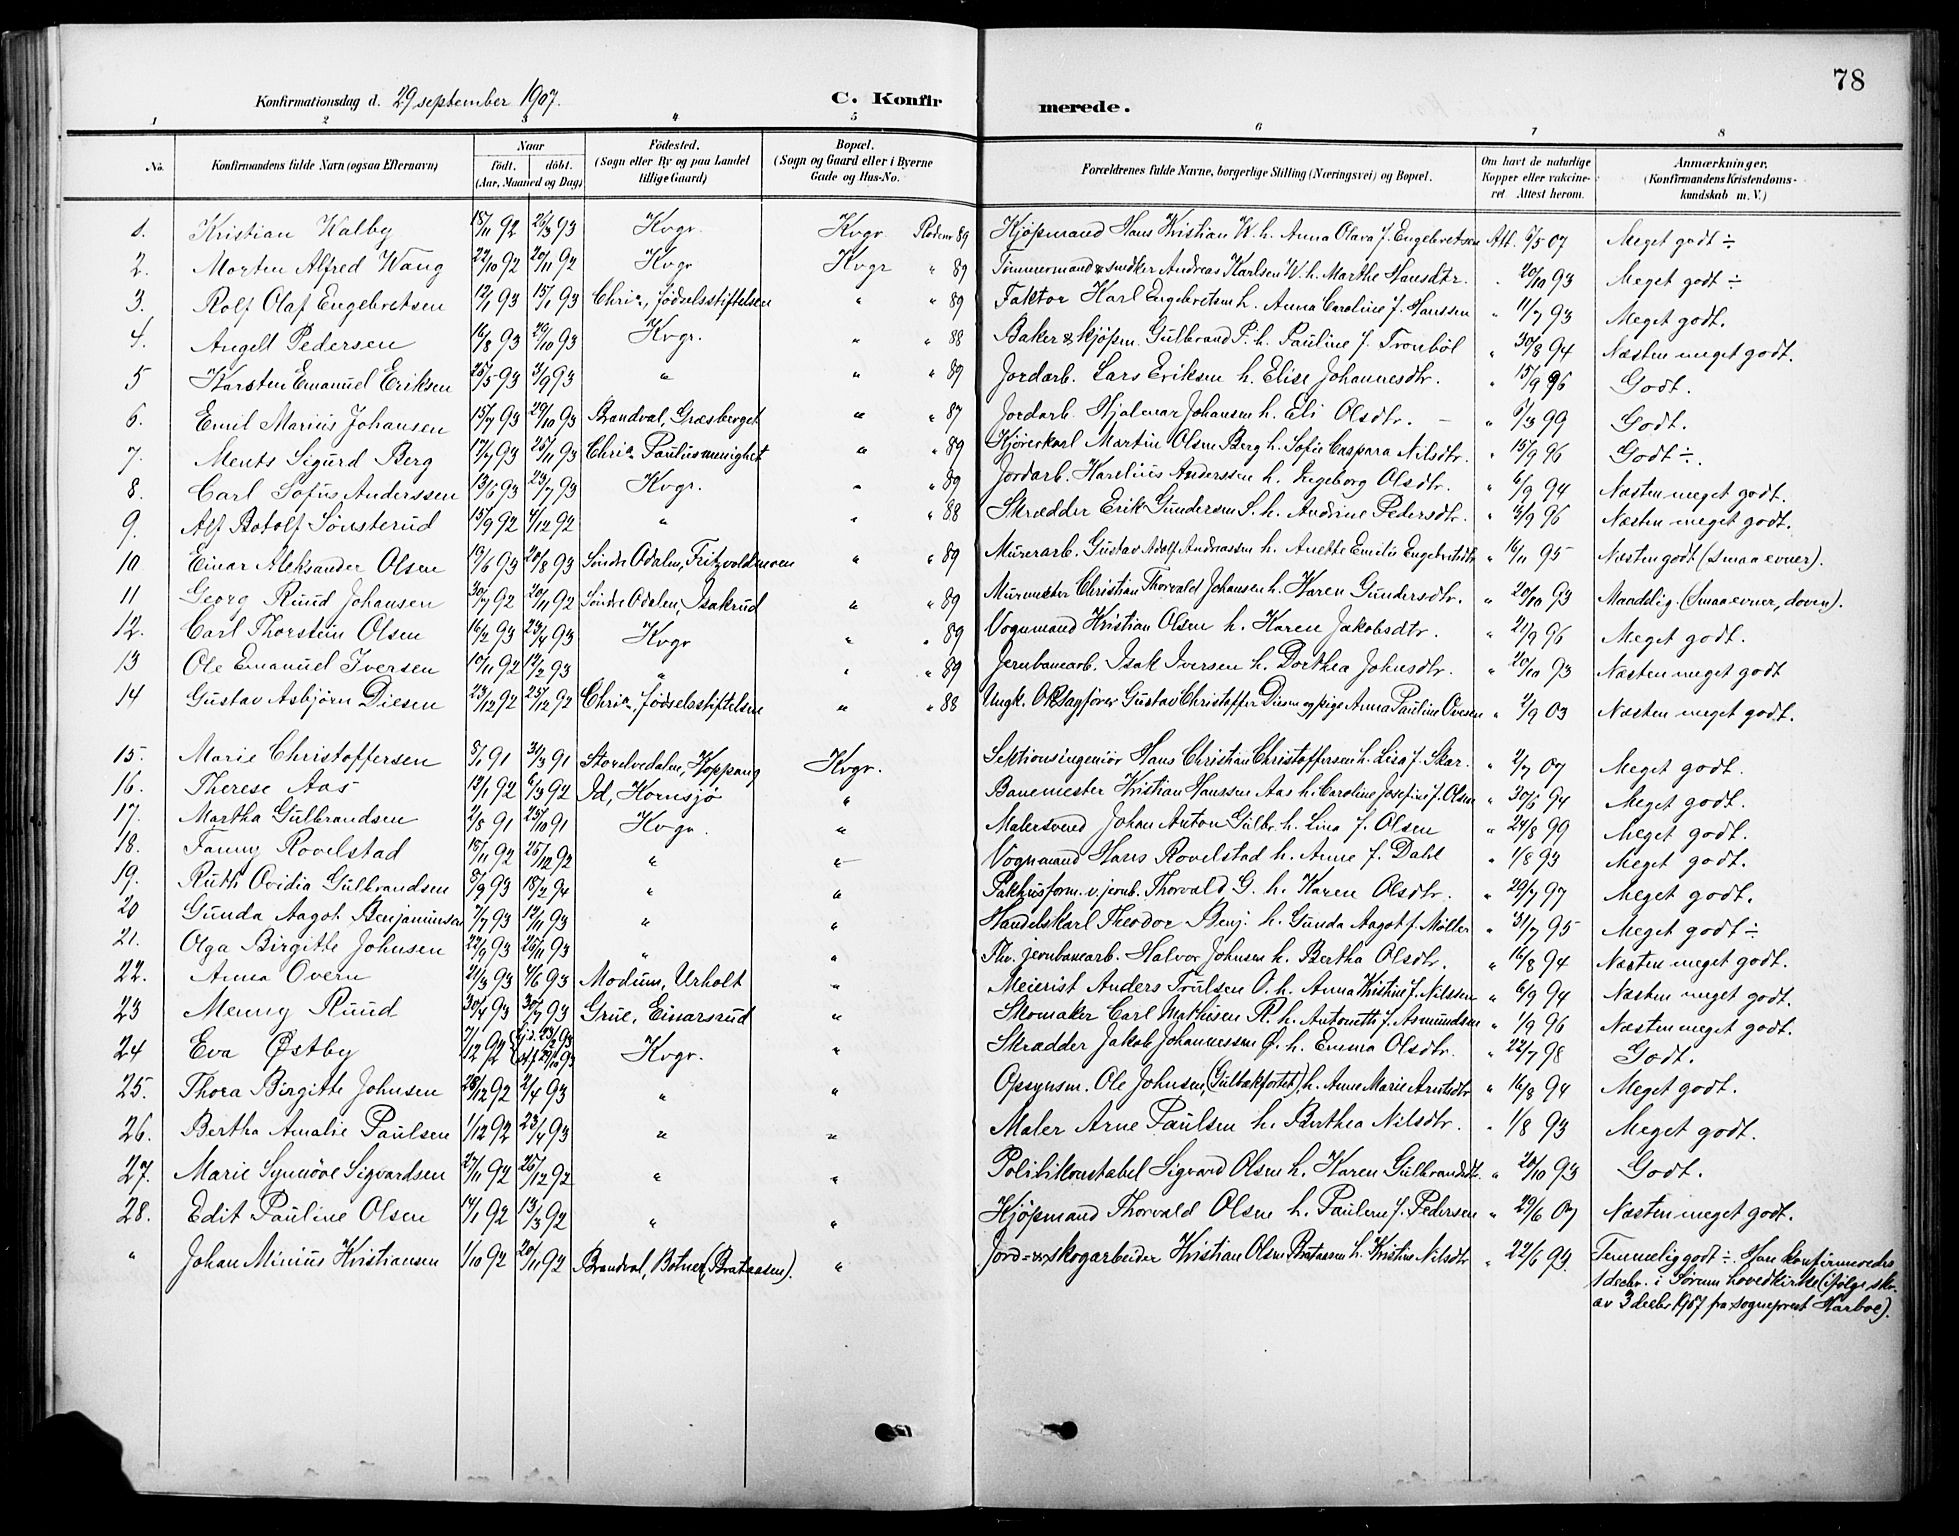 78
Konfirmationsdag d. 29 september 1907. C. Konfirmerede.
1 2 3 4 5 6 7 8
No. Konfirmandens fulde Navn (ogsaa Efternavn) Naar født. døbt. (Aar, Maaned og Dag) Fødested. (Sogn eller By og paa Landet tillige Gaard) Bopæl. (Sogn og Gaard eller i Byerne Gade og Hus-No. Forældrenes fulde Navne, borgerlige Stilling (Næringsvei) og Bopæl. Om havt de naturlige Kopper eller vakcineret Attest herom. Anmærkninger. (Konfirmandens Kristendomskundskab m. V.)
1. Kristian Walby 15/11 92 26/3 93 Kvgr. Kvgr. Rodenr 89 Kjøpmand Hans Kristian W. h. Anna Olava f. Engebretsen Att. 7/5 07 Meget godt ÷
2. Morten Alfred Wang 22/10 92 20/11 92 Kvgr Kvgr " 89 Tømmermand & snedker Andreas Karlsen W. h. Marthe Hansdtr. " 20/10 93 Meget godt ÷
3. Rolf Olaf Engebretsen 12/1 93 15/1 93 Chria, fødselsstiftelsen " " 89 Faktor Karl Engebretsen h. Anna Caroline f. Hanssen " 11/7 93 Meget godt.
4. Angell Pedersen 16/8 93 29/10 93 Kvgr. " " 88 Baker & kjøpm. Gulbrand P. h. Pauline f. Tronbøl " 30/8 94 Næsten meget godt.
5 Karsten Emanuel Eriksen 25/5 93 3/9 93 " " " 89 Jordarb. Lars Eriksen h. Elise Johannesdtr. " 15/9 96 Godt.
6. Emil Marius Johansen 15/7 93 29/10 93 Brandval, Græsberget " " 87 Jordarb. Hjalmar Johansen h. Eli Olsdtr. " 8/3 99 Godt.
7. Ments Sigurd Berg 17/7 93 25/11 93 Chria Paulusmenighet " " 89 Kjørerkarl Martin Olsen Berg h. Sofie Caspara Nilsdtr. " 15/9 96 Godt ÷.
8. Carl Sofus Anderssen 13/6 93 23/7 93 Kvgr. " " 89 Jordarb. Karelius Anderssen h. Ingeborg Olsdtr. " 6/9 94 Næsten meget godt.
9. Alf Botolf Sønsterud 15/9 92 4/12 92 " " " 88 Skrædder Erik Gundersen S. h. Andrine Pedersdtr. " 3/9 96 Næsten meget godt.
10 Einar Aleksander Olsen 19/6 93 20/8 93 Søndre Odalen, Fritzvoldmoen " " 89 Murerarb. Gustav Adolf Andreassen h. Anette Emilie Engebretsdtr " 16/11 95 Næsten godt (smaa evner).
11 Georg Ruud Johansen 30/7 92 20/11 92 Søndre Odalen, Isakrud " " 89 Murmester Christian Thorvald Johansen h. Karen Gundersdtr. " 20/10 93 Maadelig. (smaa evner, doven).
12. Carl Thorstein Olsen 16/2 93 23/4 93 Kvgr " " 89 Vognmand Kristian Olsen h. Karen Jakobsdtr. " 21/9 96 Meget godt.
13 Ole Emanuel Iversen 10/11 92 12/2 93 " " " 89 Jernbanearb. Isak Iversen h. Dorthea Johnsdtr. " 20/10 93 Næsten meget godt
14 Gustav Asbjørn Diesen 23/12 92 25/12 92 Chria, fødselsstiftelsen " " 88 Ungk. O.R.sagfører Gustav Christoffer Diesen og pige Anna Pauline Ovesen " 2/9 03 Næsten meget godt.
15. Marie Christoffersen 8/1 91 31/3 91 Storelvedalen, Koppang Kvgr. Sektionsingeniør Hans Christian Christoffersen h. Lisa f. Skar. " 2/7 07 Meget godt.
16. Therese Aas 13/1 92 6/3 92 Id, Kornsjø " Banemester Kristian Hanssen Aas h. Caroline Josefine f. Olsen " 30/6 94 Meget godt.
17. Martha Gulbrandsen 2/8 91 25/10 91 Kvgr. " Malersvend Johan Anton Gulbr. h. Lina f. Olsen " 24/8 99 Meget godt.
18. Fanny Rovelstad 15/11 92 26/12 92 " " Vognmand Hans Rovelstad h. Anne f. Dahl " 1/8 93 Meget godt.
19. Ruth Ovidia Gulbrandsen 8/9 93 18/2 94 " " Pakhusform. v. jernb. Thorvald G. h. Karen Olsdtr. " 29/7 97 Meget godt.
20 Gunda Aagot Benjaminsen 7/7 93 12/11 93 " " Handelskarl Theodor Benj. h. Gunda Aagot f. Møller " 31/7 95 Meget godt ÷
21. Olga Birgitte Johnsen 22/9 93 26/11 93 " " Fhv. jernbanearb. Halvor Johnsen h. Bertha Olsdtr. " 16/8 94 Næsten meget godt.
22. Anna Overn 21/3 93 4/6 93 Modum, Urholt " Meierist Anders Trulsen O. h. Anna Kristine f. Nilssen " 6/9 94 Næsten meget godt.
23 Menny Ruud 30/4 93 30/7 93 Grue, Einarsrud " Skomaker Carl Mathisen R. h. Antonette f. Asmundsen " 1/9 96 Næsten meget godt.
24 Eva Østby 7/12 92 Kvgr. " Skrædder Jakob Johannessen Ø. h. Emma Olsdtr. " 22/7 98 Godt.
25. Thora Birgitte Johnsen 28/12 92 2/4 93 " " Opsynsm. Ole Johnsen, (Gulbækfortet), h. Anne Marie Arntsdtr " 16/8 94 Meget godt.
26. Bertha Amalie Paulsen 1/12 92 23/4 93 " " Maler Arne Paulsen h. Berthea Nilsdtr. " 1/8 93 Meget godt.
27. Marie Synnøve Sigvardsen 27/11 92 26/12 92 " " Politikonstabel Sigvard Olsen h. Karen Gulbrandsdtr. " 20/10 93 Godt.
28. Edit Pauline Olsen 14/1 92 13/3 92 " " Kjøpmand Thorvald Olsen h. Pauline f. Pedersen " 29/6 07 Næsten meget godt.
" Johan Minius Kristiansen 1/10 92 20/11 92 Brandval, Botner, (Brataasen). " Jord- & skogarbeider Kristian Olsen Brataasen h. Kristine Nilsdtr " 22/6 93. Temmelig godt ÷. Han konfirmeredes
1 decbr. i Sørum hovedkirke (ifølge skr.
av 3 decbr 1907 fra sogneprest Harboe).